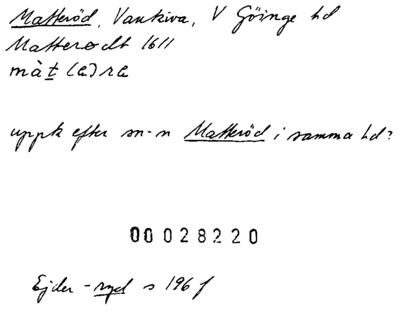 Matteröd, Vankiva, V Göinge hd
Matterødt 1611
màt(a)ra
uppk efter sn-n Matteröd i samma hd?
00028220
Ejder -ryd s 196 f